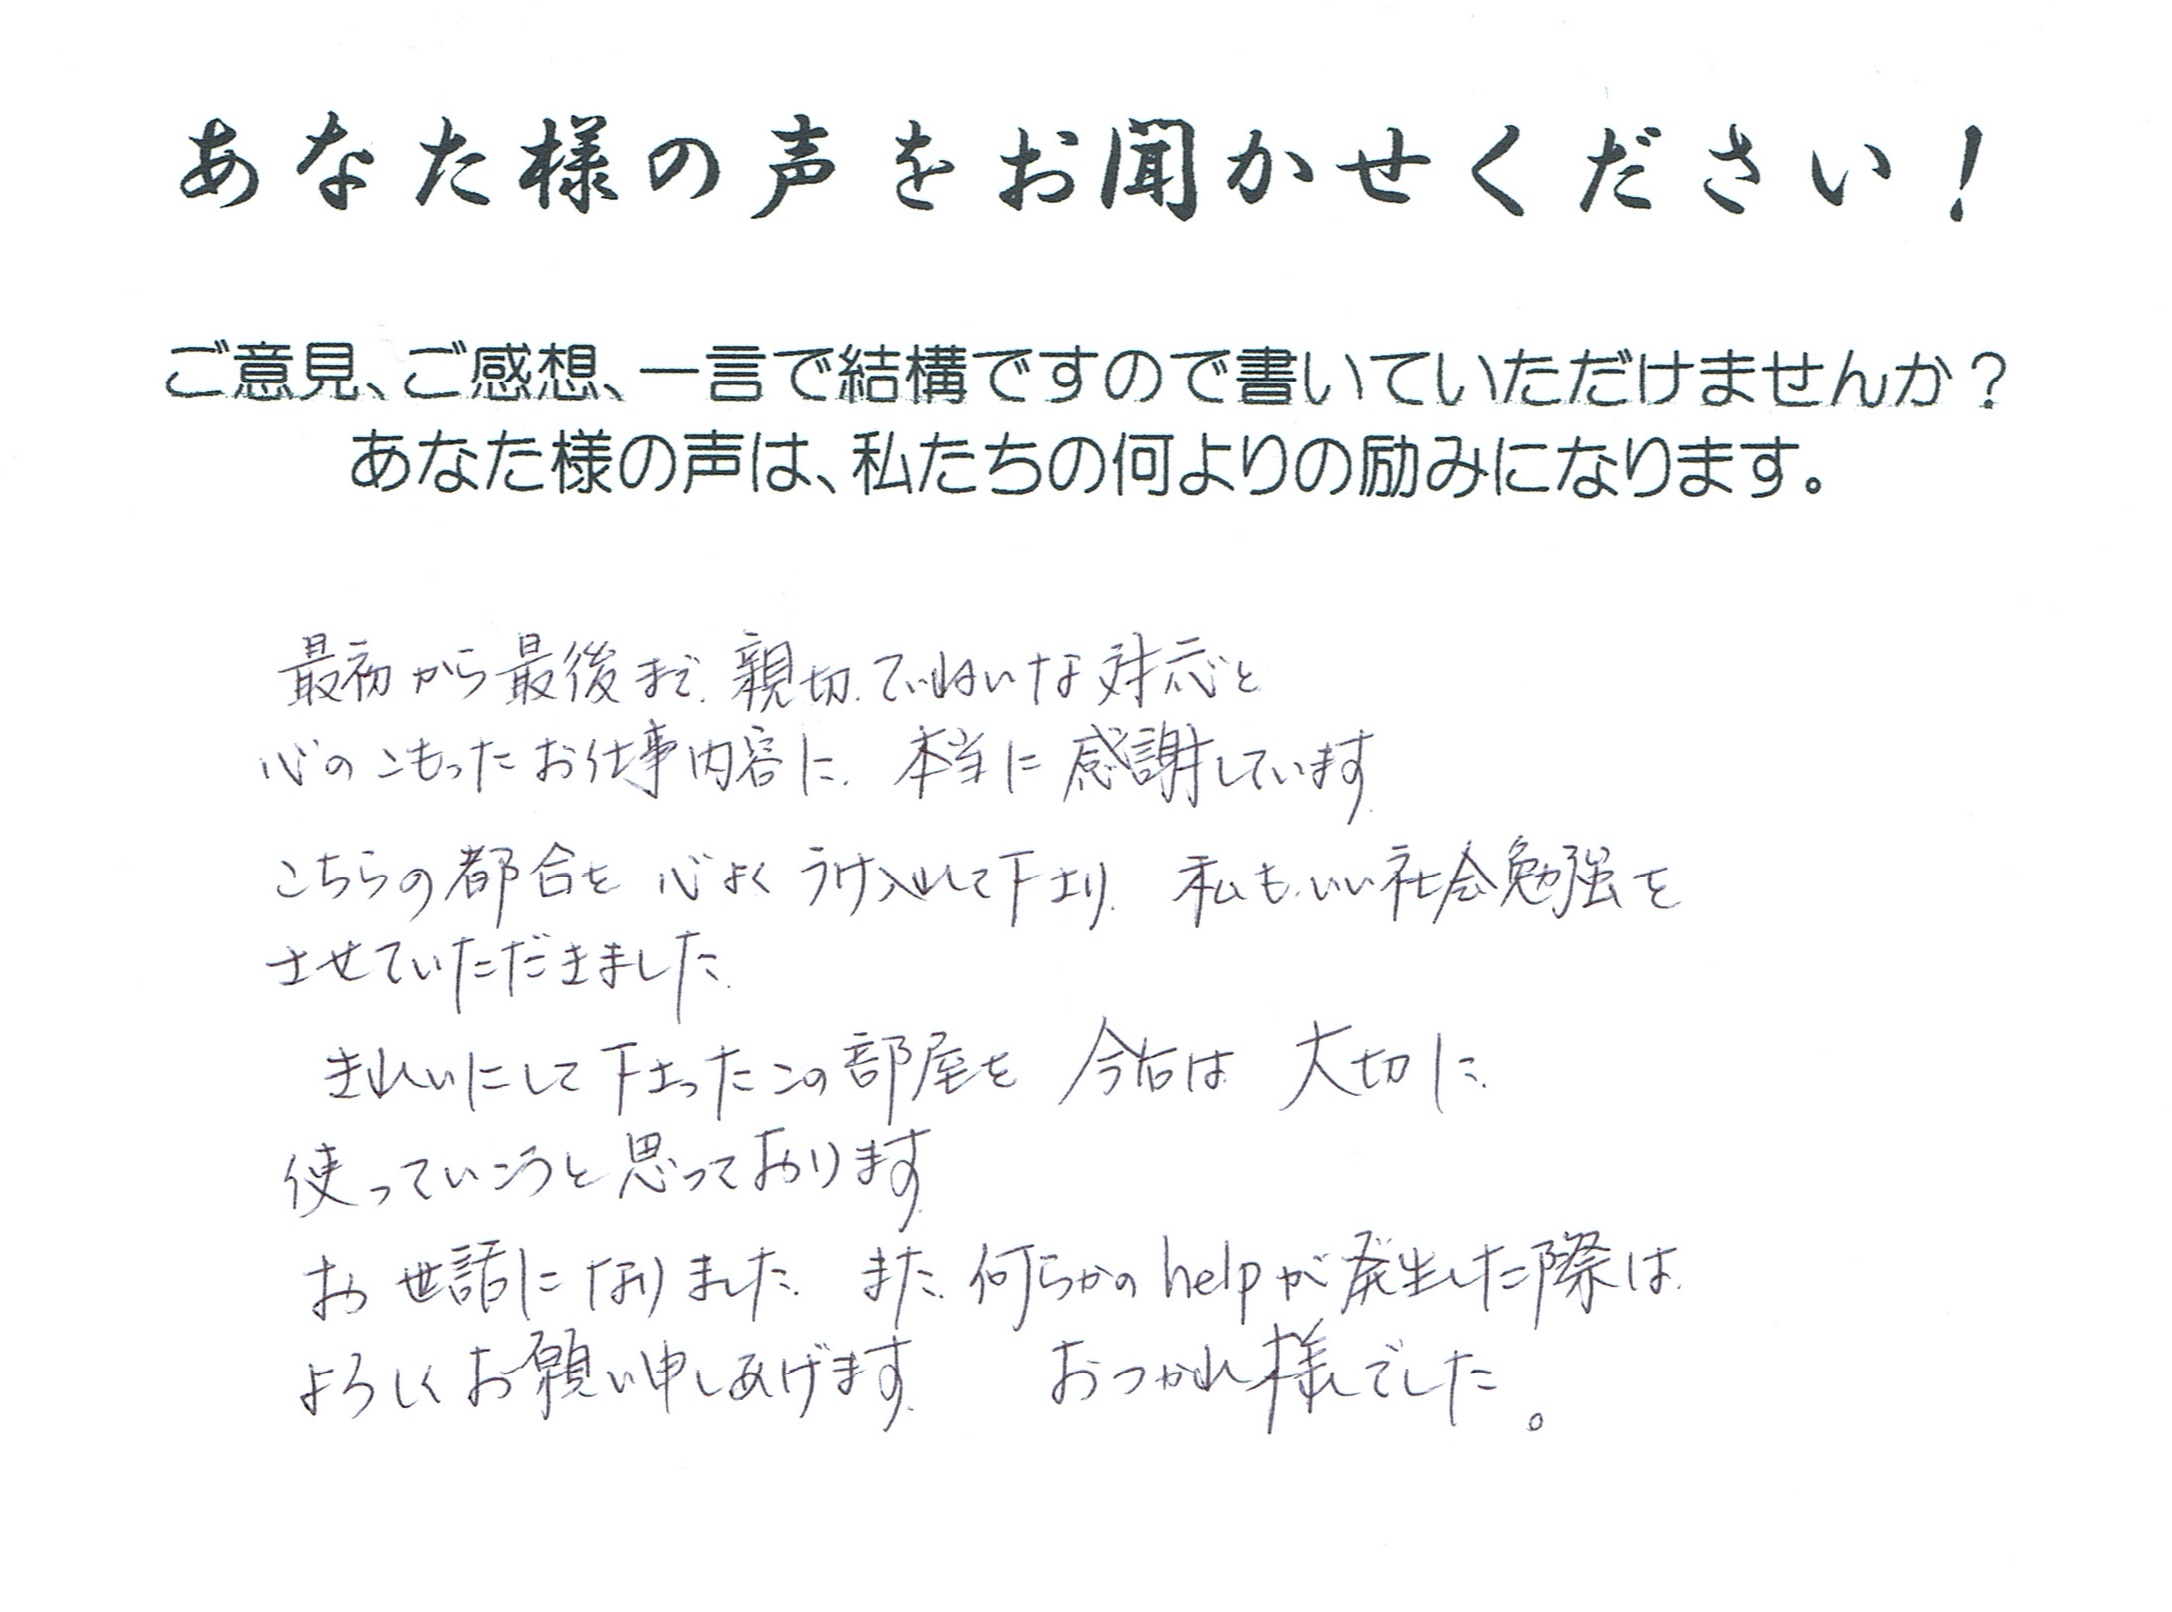 あなた様の声をお聞かせください！
ご意見、ご感想、一言で結構ですので書いていただけませんか？
あなた様の声は、私たちの何よりの励みになります。
最初から最後まで、親切、ていねいな対応と
心のこもったお仕事内容に、本当に感謝しています
こちらの都合を心よくうけ入れて下さり、私もいい社会勉強を
させていただきました。
きれいにして下さったこの部屋を 今后は 大切に
使っていこうと思っております
お世話になりました。また、何らかのhelpが発生した際は
よろしくお願い申しあげます おつかれ様でした。